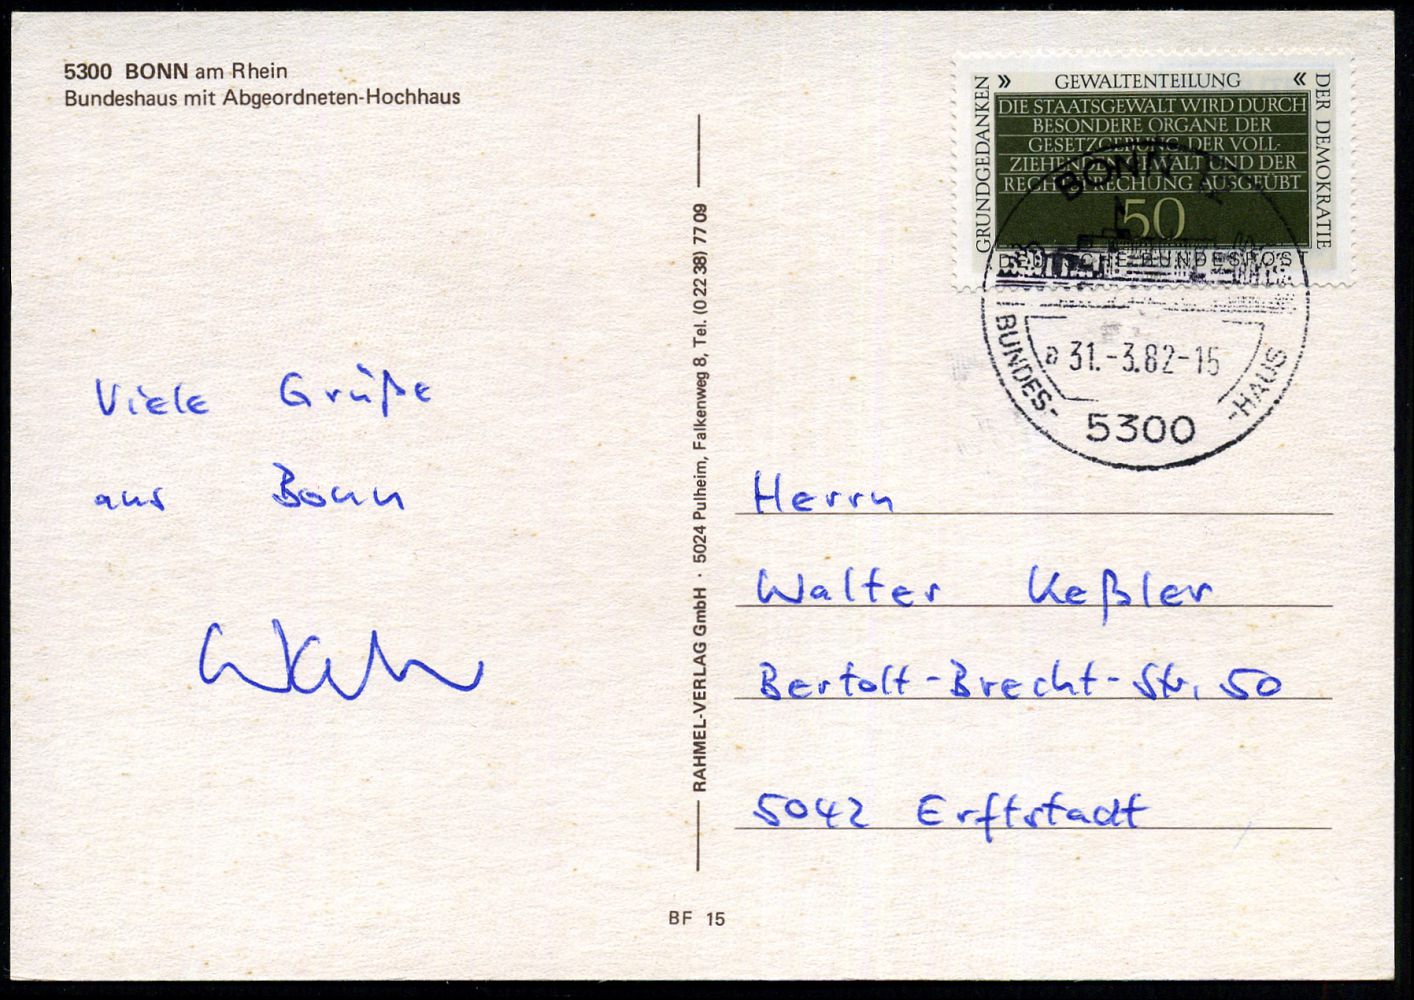 5300 BONN am Rhein
Bundeshaus mit Abgeordneten-Hochhaus
Viele Grüße
aus Bonn
RAHMEL-VERLAG GmbH · 5024 Pulheim, Falkenweg 8, Tel. (0 22 38) 77 09
BF 15
GRUNDGEDANKEN
» GEWALTENTEILUNG «
DER DEMOKRATIE
DIE STAATSGEWALT WIRD DURCH
BESONDERE ORGANE DER
GESETZGEBUNG, DER VOLL-
ZIEHENDEN GEWALT UND DER
RECHTSPRECHUNG AUSGEÜBT
50
DEUTSCHE BUNDESPOST
BONN
BUNDES-
-HAUS
a 31.-3.82-15
5300
Herrn
Walter Keßler
Bertolt-Brecht-Str. 50
5042 Erftstadt